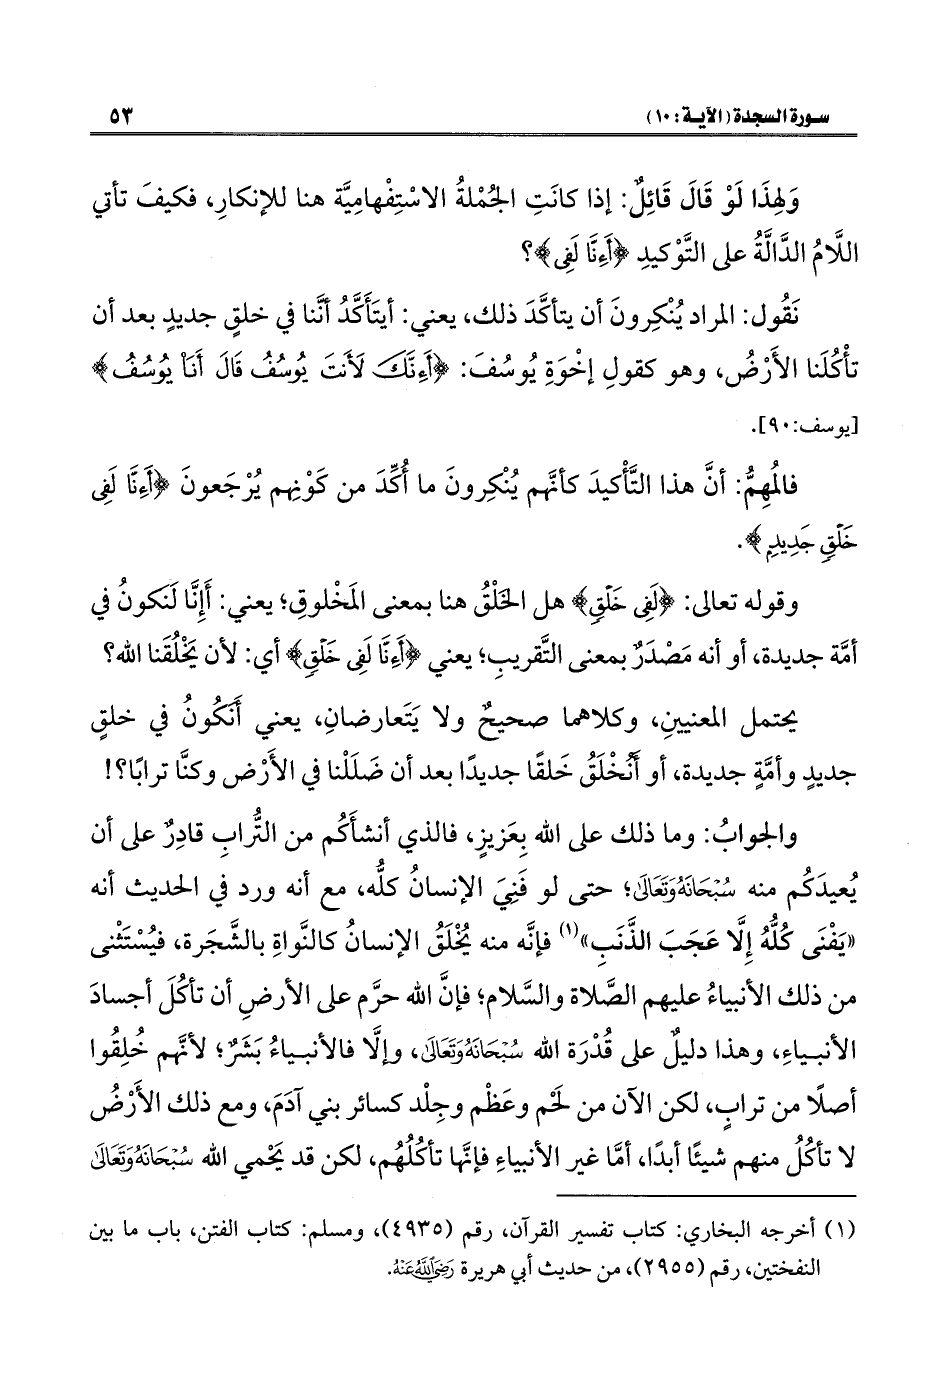 سورة السجدة (الآية: ١٠) ٥٣
وَلِهَذَا لَوْ قَالَ قَائِلٌ: إذا كانَتِ الجُمْلةُ الاسْتِفْهامِيَّة هنا للإنكارِ، فكيفَ تأتي
اللَّامُ الدَّالَّةُ على التَّوْكيدِ ﴿أَءِنَّا لَفِى﴾؟
نَقُول: المراد يُنْكِرونَ أن يتأكَّدَ ذلك، يعني: أيَتَأَكَّدُ أنَّنا في خلقٍ جديدٍ بعد أن
تأْكُلَنا الأَرْضُ، وهو كقولِ إخْوَةِ يُوسُفَ: ﴿أَءِنَّكَ لَأَنتَ يُوسُفُ قَالَ أَنَا۠ يُوسُفُ﴾
[يوسف:٩٠].
فالمُهِمُّ: أنَّ هذا التَّأْكيدَ كأنَّهم يُنْكِرونَ ما أُكِّدَ من كَوْنِهم يُرْجَعونَ ﴿أَءِنَّا لَفِى
خَلْقٍ جَدِيدٍ﴾.
وقوله تعالى: ﴿لَفِى خَلْقٍ﴾ هل الخَلْقُ هنا بمعنى المَخْلوقِ؛ يعني: أَإِنَّا لَنكونُ في
أمَّة جديدة، أو أنه مَصْدَرٌ بمعنى التَّقريبِ؛ يعني ﴿أَءِنَّا لَفِى خَلْقٍ﴾ أي: لأن يَخْلُقَنا الله؟
يحتمل المعنيينِ، وكلاهما صحيحٌ ولا يَتَعارضانِ، يعني أَنَكُونُ في خلقٍ
جديدٍ وأمَّةٍ جديدة، أو أَنُخْلَقُ خَلقًا جديدًا بعد أن ضَلَلْنا في الأَرْض وكنَّا ترابًا؟!
والجوابُ: وما ذلك على الله بِعَزيزٍ، فالذي أنشأَكُم من التُّرابِ قادِرٌ على أن
يُعيدَكُم منه سُبْحَانَهُ وَتَعَالَى؛ حتى لو فَنِيَ الإنسانُ كلُّه، مع أنه ورد في الحديث أنه
«يَفْنَى كُلُّهُ إِلَّا عَجَبَ الذَّنَبِ»(١) فإنَّه منه يُخْلَقُ الإنسانُ كالنَّواةِ بالشَّجَرة، فيُسْتَثْنى
من ذلك الأنبياءُ عليهم الصَّلاة والسَّلام؛ فإنَّ الله حرَّم على الأرضِ أن تأكُلَ أجسادَ
الأنبياءِ، وهذا دليلٌ على قُدْرَة الله سُبْحَانَهُ وَتَعَالَى، وإلَّا فالأنبياءُ بَشَرٌ؛ لأنَّهم خُلِقُوا
أصلًا من ترابٍ، لكن الآن من لَحْم وعَظْم وجِلْد كسائر بني آدَمَ، ومع ذلك الأَرْضُ
لا تأكُلُ منهم شيئًا أبدًا، أمَّا غير الأنبياءِ فإنَّها تأكُلُهُم، لكن قد يَحْمي الله سُبْحَانَهُ وَتَعَالَى
(١) أخرجه البخاري: كتاب تفسير القرآن، رقم (٤٩٣٥)، ومسلم: كتاب الفتن، باب ما بين
النفختين، رقم (٢٩٥٥)، من حديث أبي هريرة رَضِيَ اللَّهُ عَنْهُ.